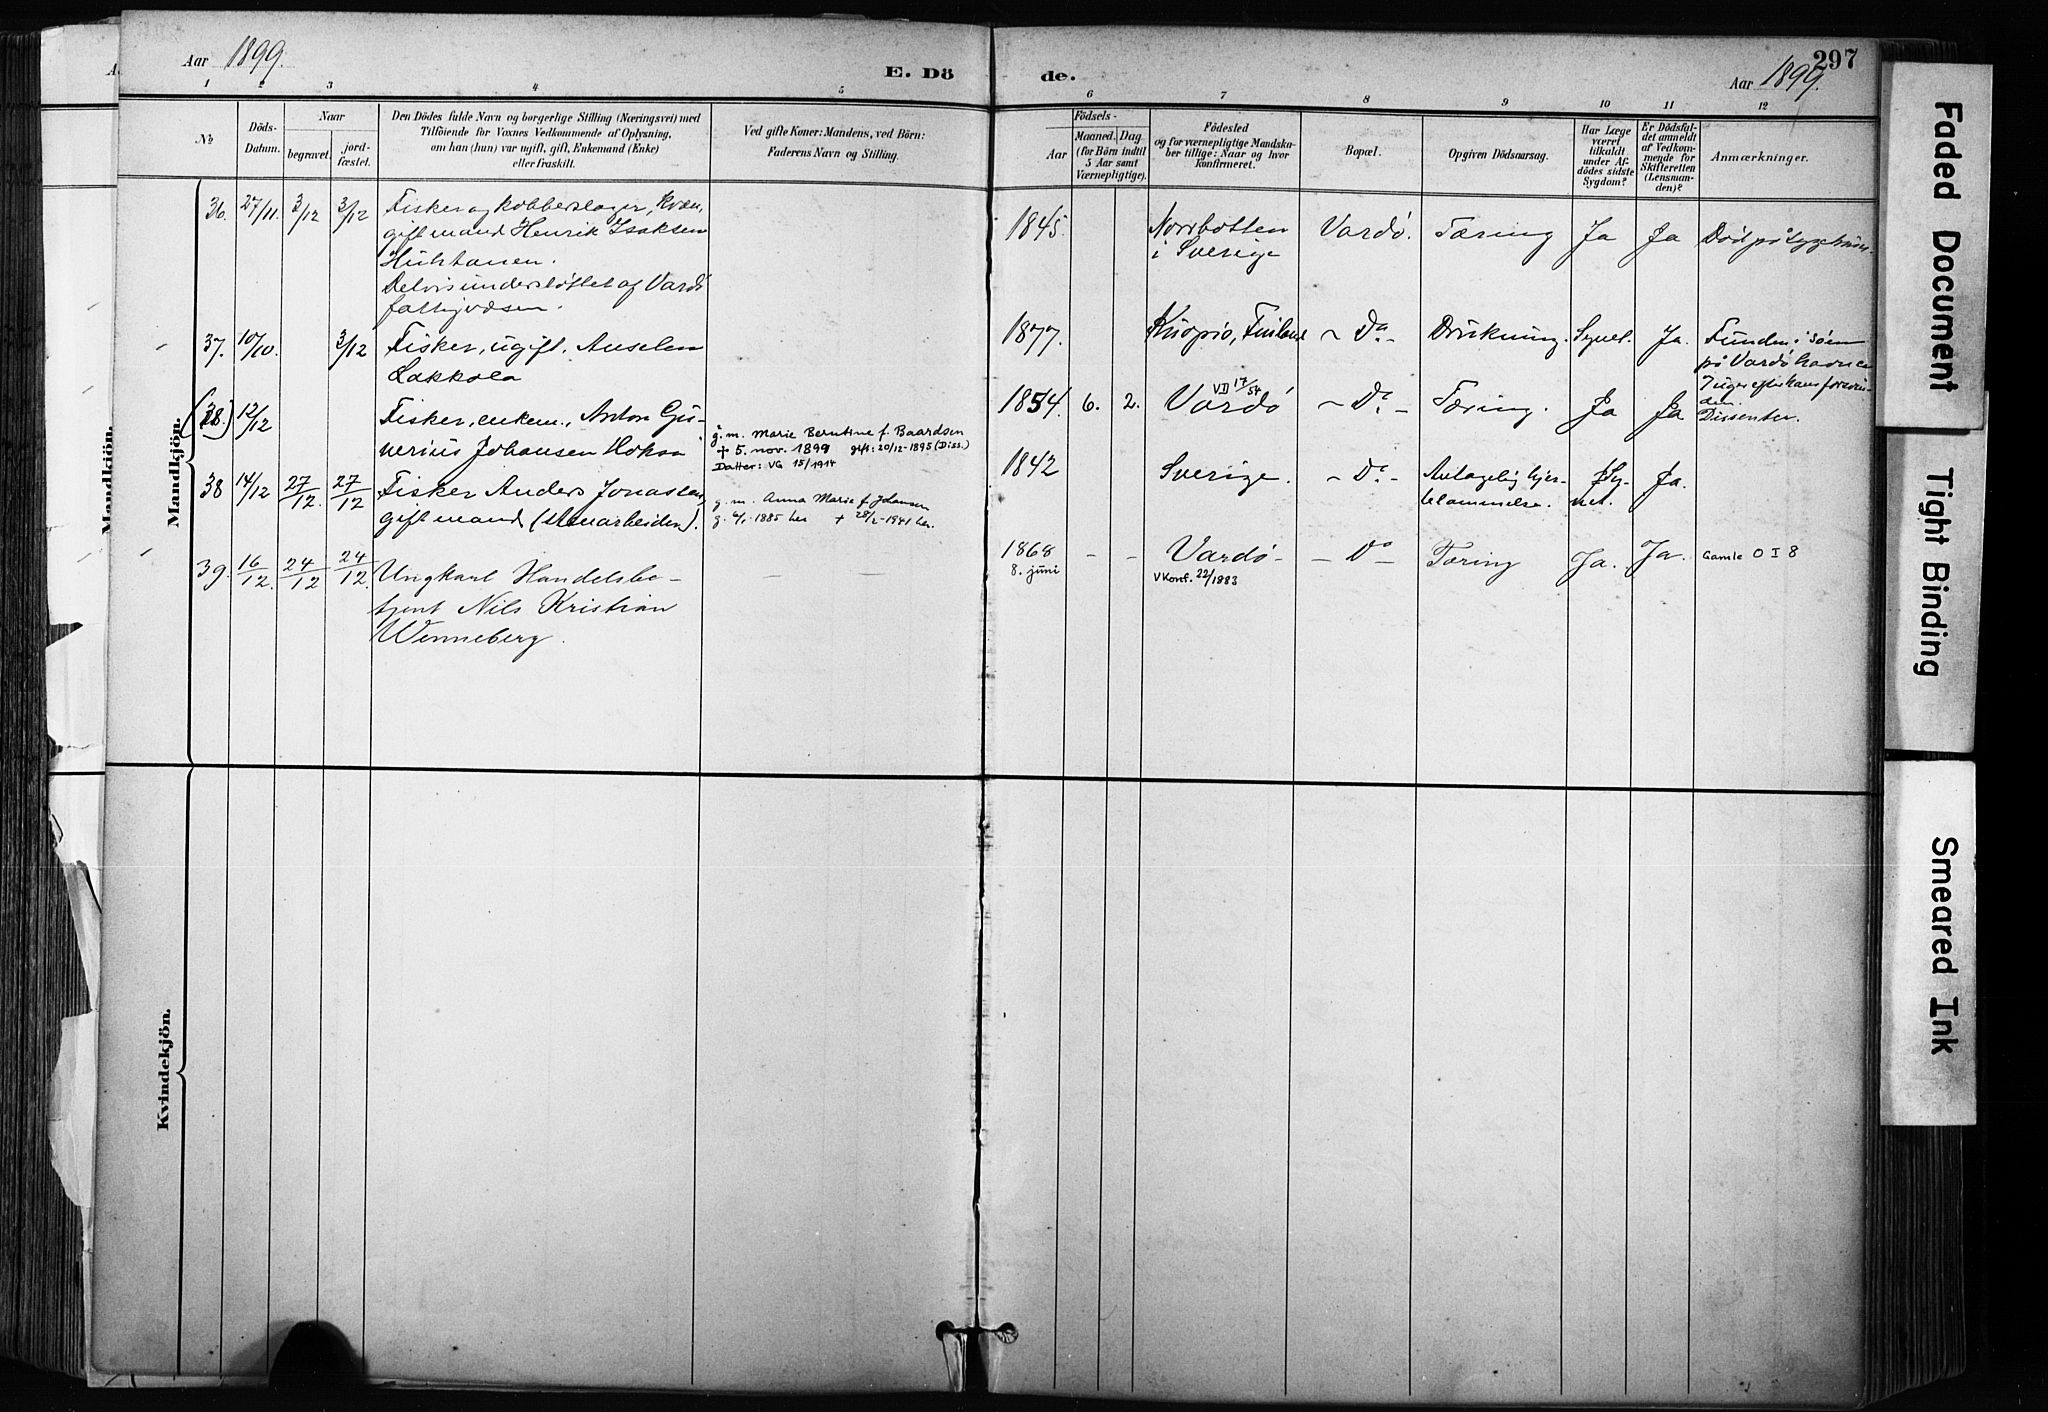 Aar 1899.
E. Dö
de.
297
Aar 1899.
1 2 3 4 5 6 7 8 9 10 11 12
No
Döds-
Datum.
Naar
begravet.
jord-
fæstet.
Den Dödes fulde Navn og borgerlige Stilling (Næringsvei) med
Tilföiende for Voxnes Vedkommende af Oplysning,
om han (hun) var ugift, gift, Enkemand (Enke)
eller fraskilt.
Ved gifte Koner: Mandens, ved Börn:
Faderens Navn og Stilling.
Födsels-
Aar
Maaned. Dag
(for Börn indtil
5 Aar samt
Værnepligtige).
Födested
og for værnepligtige Mandska-
ber tillige: Naar og hvor
konfirmeret.
Bopæl.
Opgiven Dödsaarsag.
Har Læge
været
tilkaldt
under Af-
dödes sidste
Sygdom?
Er Dödsfal-
det anmeldt
af Vedkom-
mende for
Skifteretten
(Lensman-
den)?
Anmærkninger.
Mandkjön.
Mandkjön.
36. 27/11. 3/12 3/12
Fisker og kobberslager, kvæn,
gift mand Henrik Isaksen
Huhtanen.
Delvis understøttet af Vardø
fattigvæsen.
1845.
Norrbotten
i Sverige
Vardø. Tæring Ja Ja
Død på sygehuset.
37. 10/10. 3/12
Fisker, ugift,
Lakkola
1877. Kuopio, Finland - Do - Drukning. Synet. Ja.
Funden i søen
på Vardø havn ca
(38.) 12/12
Fisker, enkem., Anton Gu-
nerius Johansen Hoksa
g. m. Marie Berntine f. Baardsen
+ 5. nov. 1899 gift: 20/12-1895 (Diss.)
Datter: VG 15/1914
1854. 6. 2.
VD 17/54
Vardø - Do - Tæring. Ja Ja
Dissenter.
38 14/12 27/12. 27/12
Fisker Anders Jonassen,
gift mand (stenarbeider).
g. m. Anna Marie f. Johansen
g. 4/1-1885 her + 28/2-1941 her.
1842 Sverige. - Do -
Antagelig hjer-
telammelse.
Sy-
net.
Ja.
39. 16/12. 24/12 24/12.
Ungkarl Handelsbe-
tjent Nils Kristian
Wenneberg.
1868
8. juni
- - Vardø -
VKonf. 22/1883
- Do - Tæring Ja. Ja. Gamle O I 8
Kvindekjön.
Faded Document
Tight Binding
Smeared Ink